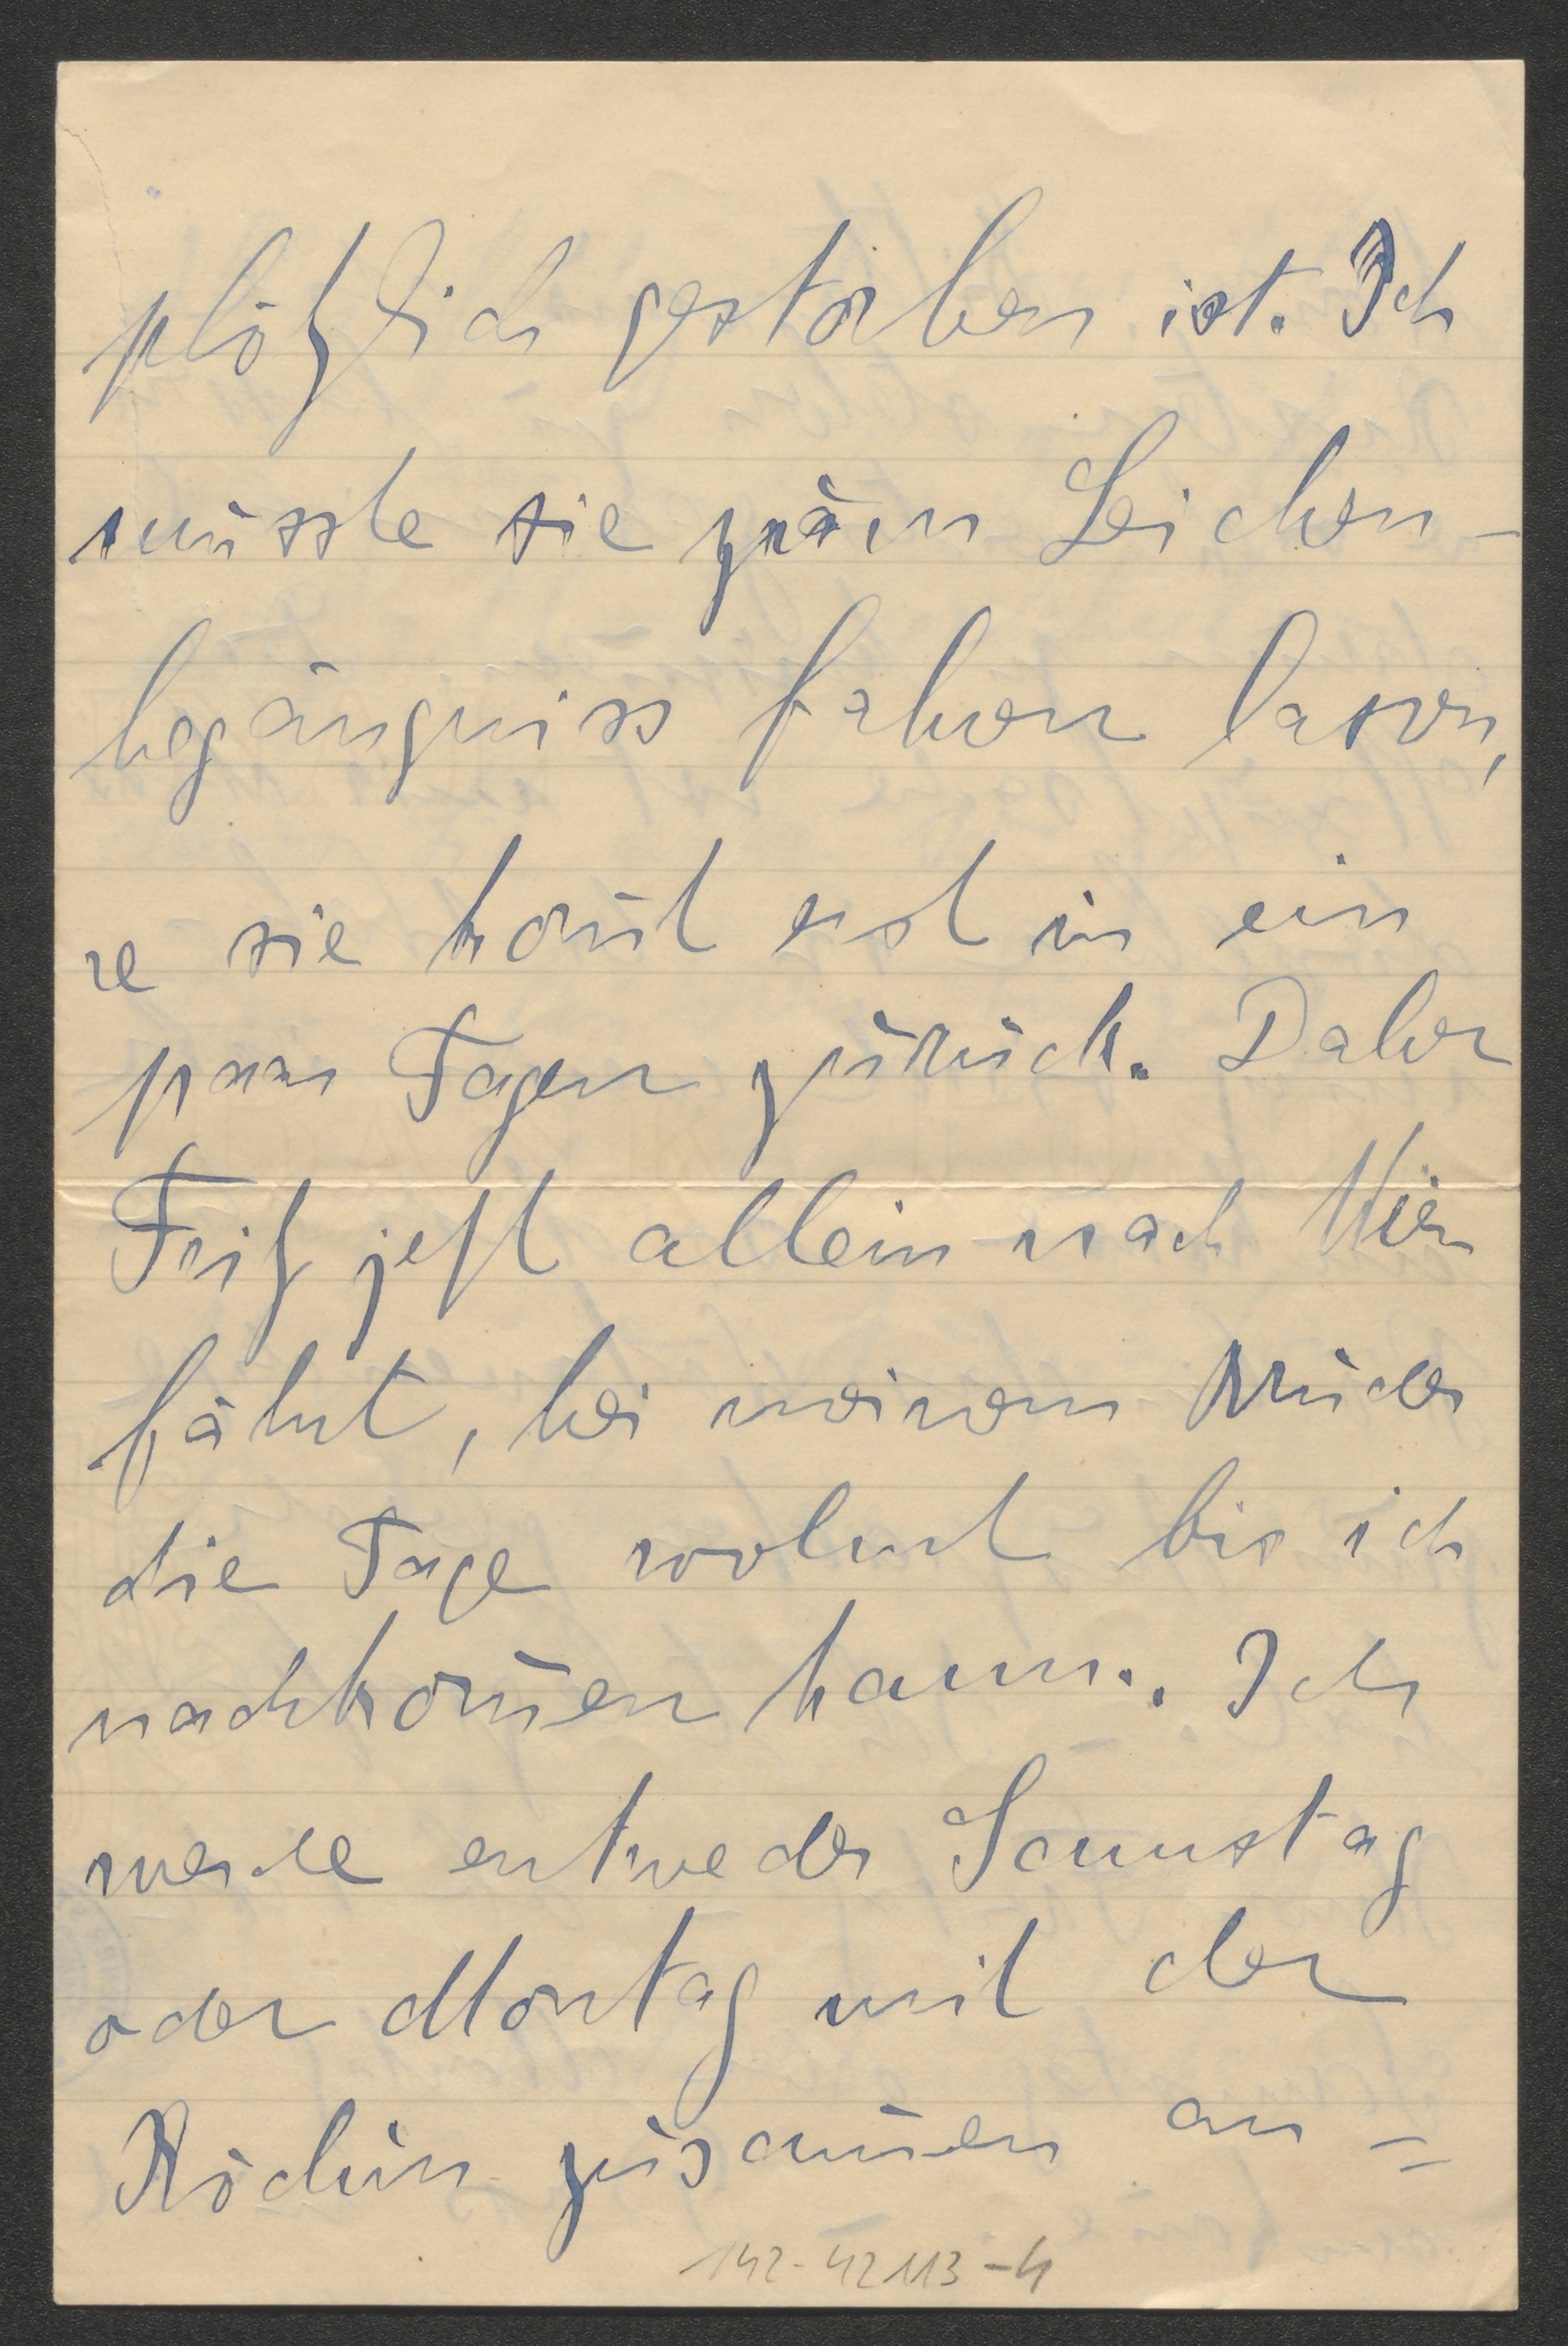 plötzlich gestorben ist. Ich
müsste sie zum Leichen-
begängniss fahren lassen,
sie kom̄t erst in ein
paar Tagen zurück. Daher
Fritz jetzt allein nach Wien
fährt, bei meinem Bruder
die Tage wohnt bis ich
nachkom̄en kann. Ich
werde entweder Samstag
oder Montag mit der
Köchin zusam̄en an=
142-42113-4